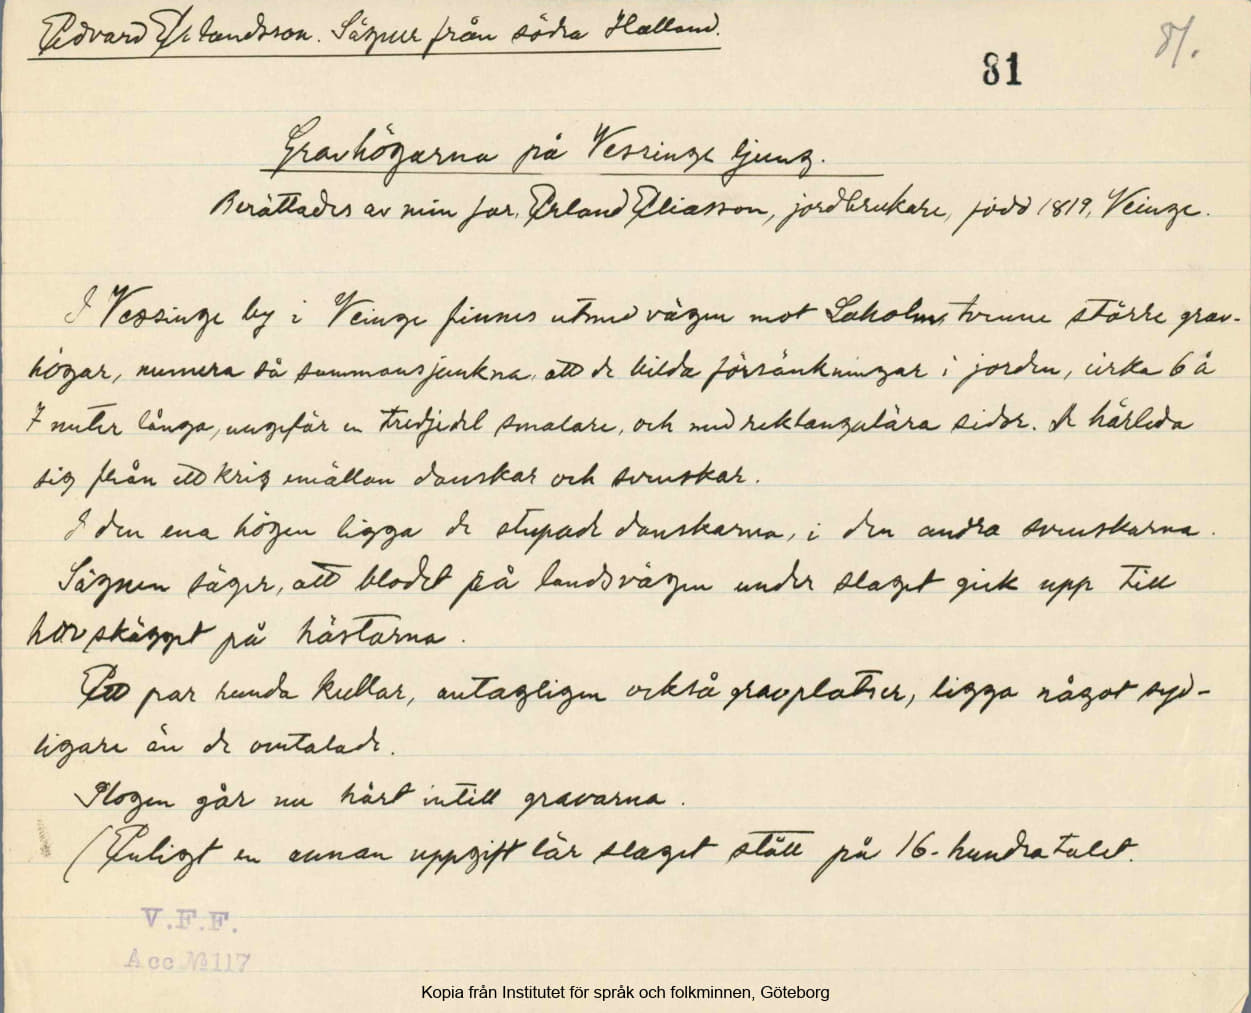 Edvard Erlandsson. Sägner från södra Halland.
81.
81
Gravhögarna på Vessinge ljung.
Berättades av min far, Erland Eliasson, jordbrukare, född 1819, Veinge.
I Vessinge by i Veinge finnes utmed vägen mot Laholm, tvenne större grav-
högar, numera så sammansjunkna, att de bilda försänkningar i jorden, cirka 6 à
7 meter långa, ungefär en tredjedel smalare, och med rektangulära sidor. De härleda
sig från ett krig emellan danskar och svenskar.
I den ena högen ligga de stupade danskarna, i den andra svenskarna.
Sägnen säger, att blodet på landsvägen under slaget gick upp till
hovskägget på hästarna.
Ett par runda kullar, antagligen också gravplatser, ligga något syd-
ligare än de omtalade.
Plogen går nu hårt intill gravarna.
(Enligt en annan uppgift lär slaget stått på 16-hundratalet.
V.F.F.
Acc №117
Kopia från Institutet för språk och folkminnen, Göteborg